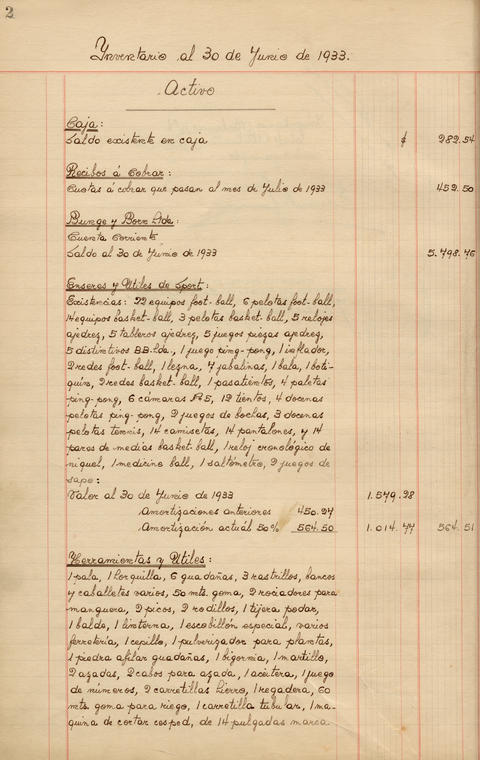 2
Inventario al 30 de Junio de 1933.
Activo
Caja:
Saldo existente en caja $ 282.54
Recibos á Cobrar:
Cuotas á cobrar que pasan al mes de Julio de 1933 452.50
Bunge y Born Ltda:
Cuenta Corriente
Saldo al 30 de Junio de 1933 5.498.76
Enseres y Utiles de Sport:
Existencias: 22 equipos foot-ball, 6 pelotas foot-ball,
14 equipos basket-ball, 3 pelotas basket-ball, 5 relojes
ajedrez, 5 tableros ajedrez, 5 juegos piezas ajedrez,
5 distintivos BB.Ltda., 1 juego ping-pong, 1 inflador,
2 redes foot-ball, 1 lezna, 7 jabalinas, 1 bala, 1 boti-
quin, 2 redes basket-ball, 1 pasatientos, 4 paletas
ping-pong, 6 cámaras Nº5, 12 tientos, 4 docenas
pelotas ping-pong, 2 juegos de bochas, 3 docenas
pelotas tennis, 14 camisetas, 14 pantalones, y 14
pares de medias basket-ball, 1 reloj cronológico de
niquel, 1 medicine ball, 1 saltómetro, 2 juegos de
sapo:
Valor al 30 de Junio de 1933 1.579.28
Amortizaciones anteriores 450.27
Amortización actuál 50% 564.50 1.014.77 564.51
Herramientas y Utiles:
1 pala, 1 horquilla, 6 guadañas, 3 rastrillos, bancos
y caballetes varios, 50 mts. goma, 2 rociadores para
manguera, 2 picos, 2 rodillos, 1 tijera podar,
1 balde, 1 linterna, 1 escobillón especial, varios
ferretería, 1 cepillo, 1 pulverizador para plantas,
1 piedra afilar guadañas, 1 bigornia, 1 martillo,
2 azadas, 2 cabos para azada, 1 aceitera, 1 juego
de números, 2 carretillas hierro, 1 regadera, 60
mts. goma para riego, 1 carretilla tubular, 1 ma-
quina de cortar cesped, de 14 pulgadas marca